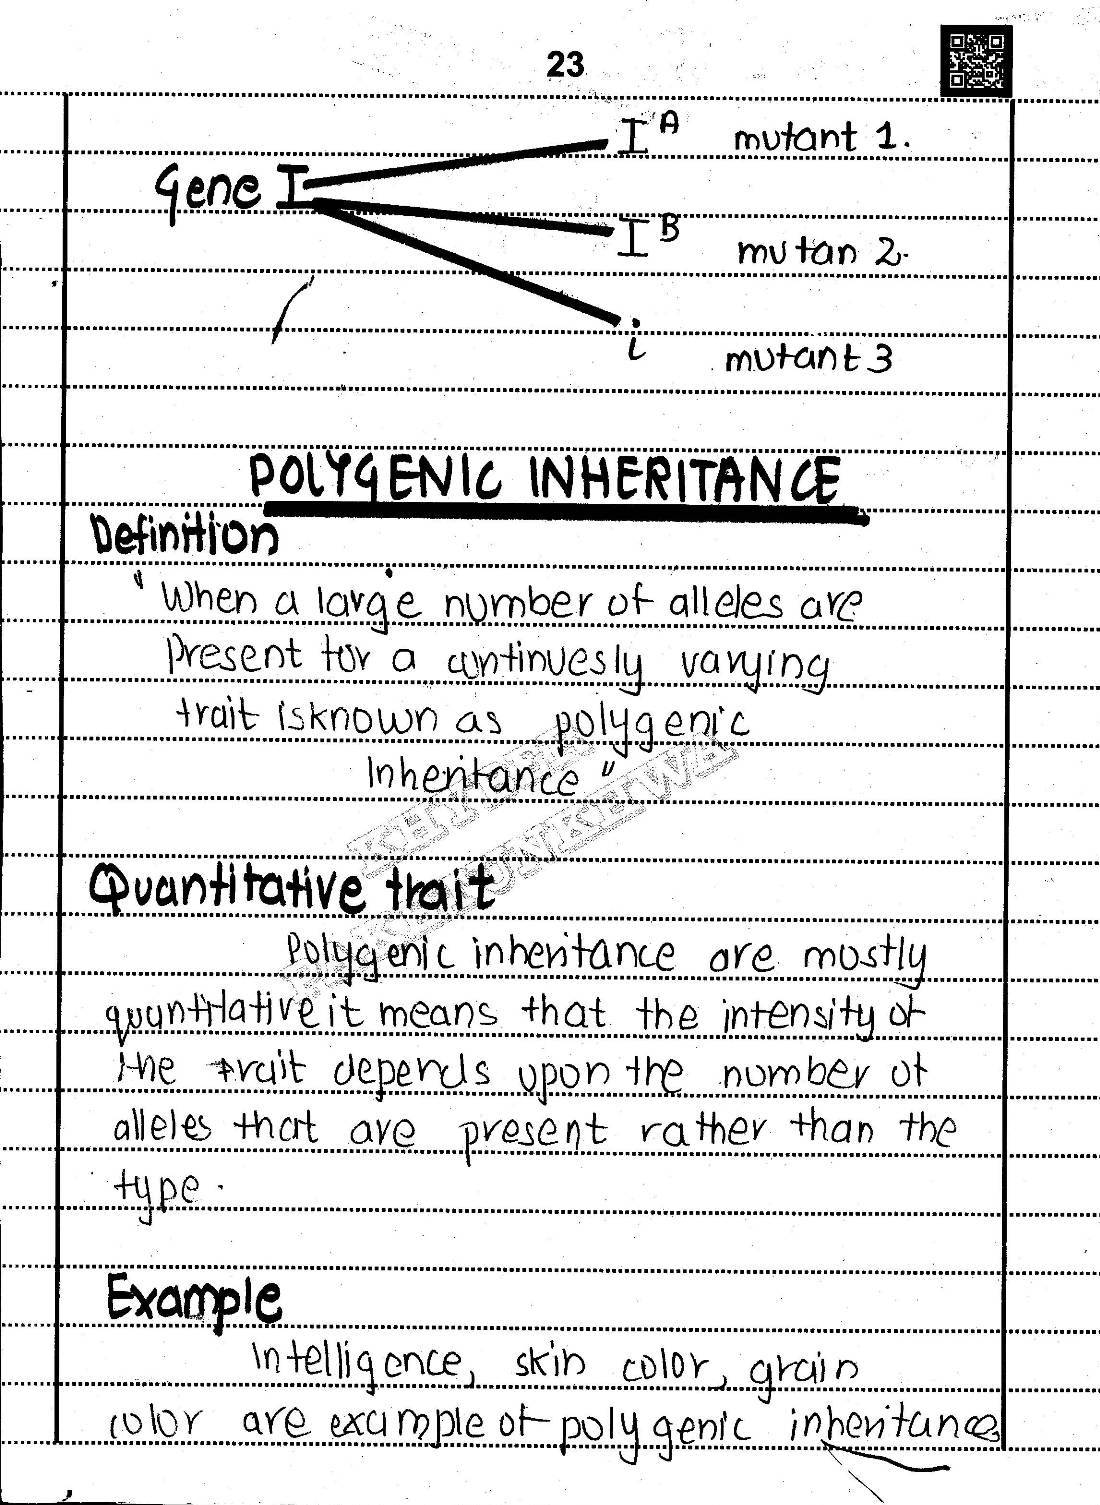 23
Gene I
I^A mutant 1.
I^B mutan 2.
i mutant 3
POLYGENIC INHERITANCE
Definition
"When a large number of alleles are
Present for a continuesly varying
trait isknown as polygenic
Inheritance"
KHYBER
PAKHTUNKHWA
Quantitative trait
Polygenic inheritance are mostly
quantitative it means that the intensity of
the trait depends upon the number of
alleles that are present rather than the
type.
Example
Intelligence, skin color, grain
color are example of polygenic inheritance